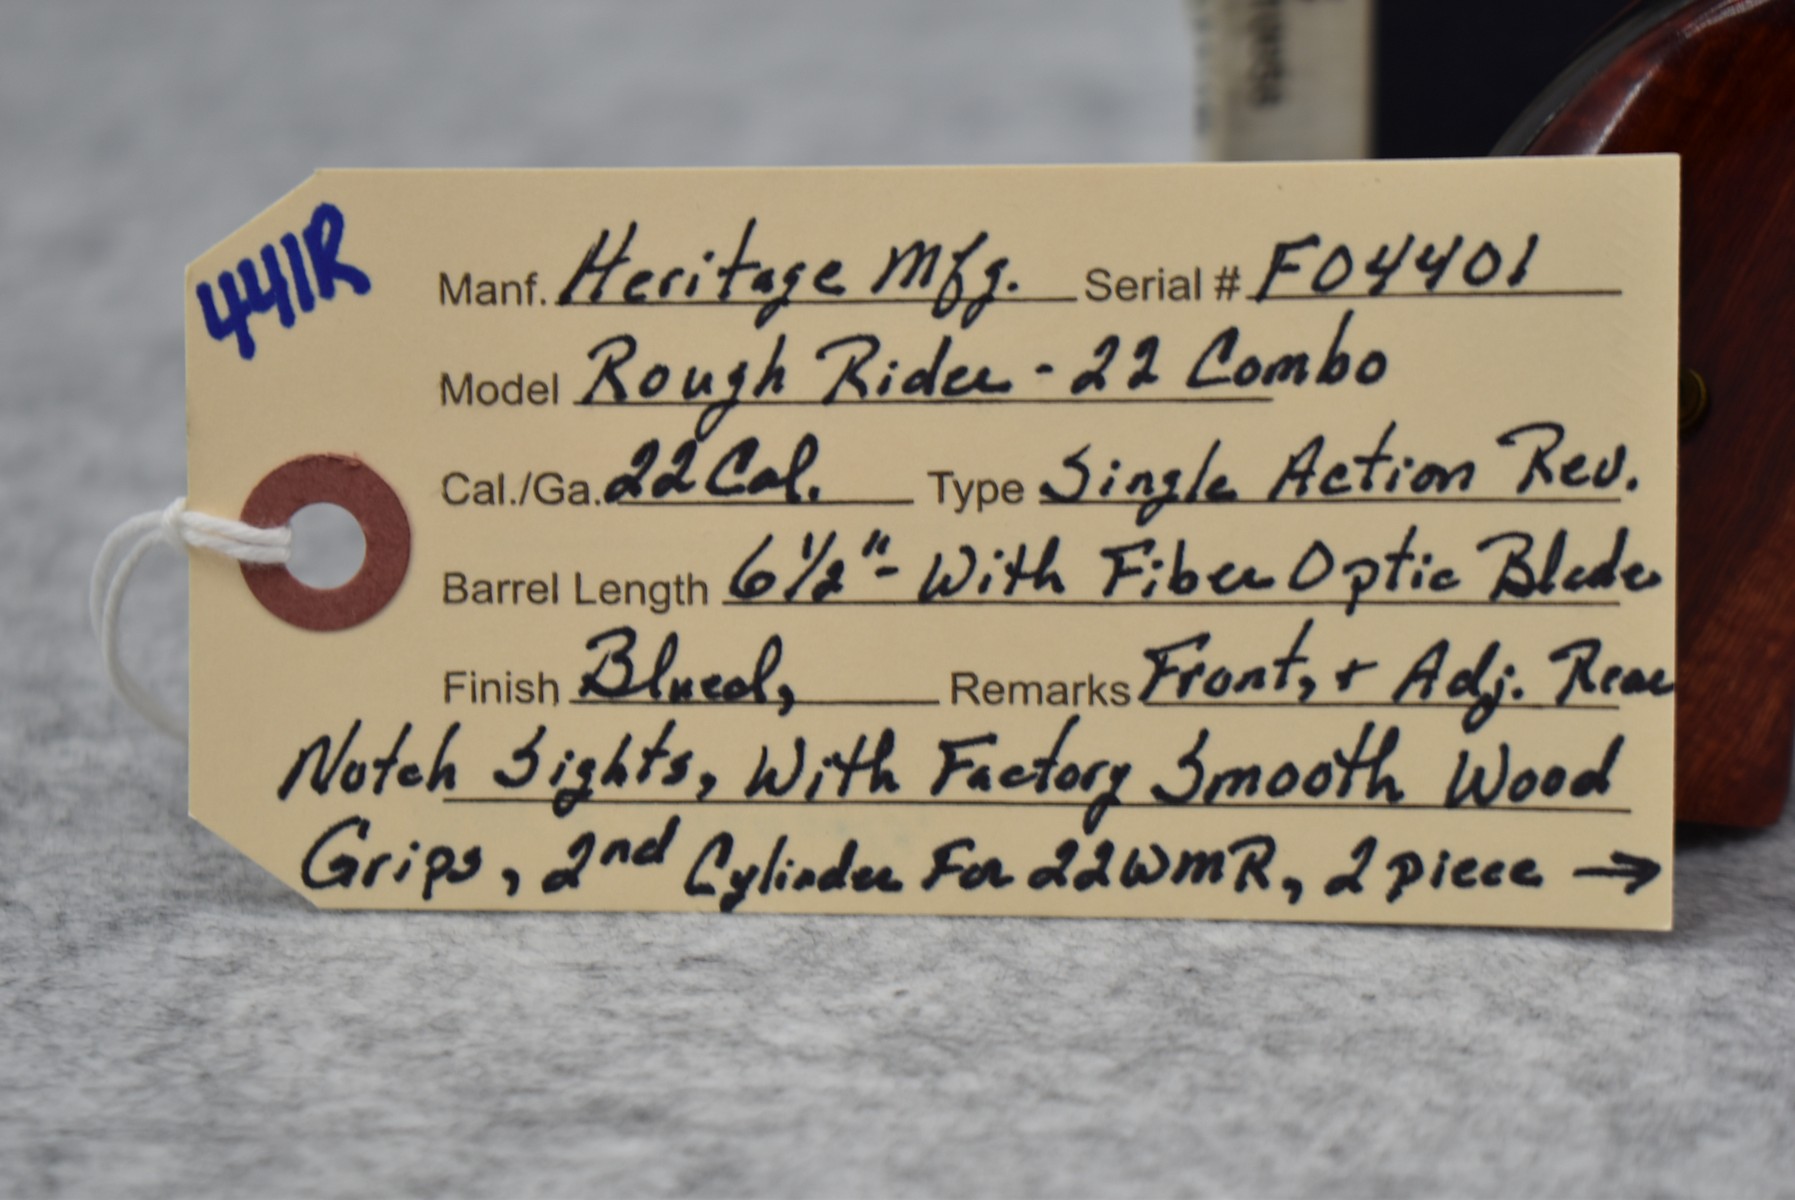 441R
Manf. Heritage Mfg. Serial # F04401
Model Rough Rider - 22 Combo
Cal./Ga. 22 Cal. Type Single Action Rev.
Barrel Length 6 1/2" - With Fiber Optic Blade
Finish Blued, Remarks Front, + Adj. Rear
Notch Sights, With Factory Smooth Wood
Grips, 2nd Cylinder For 22WMR, 2 piece →